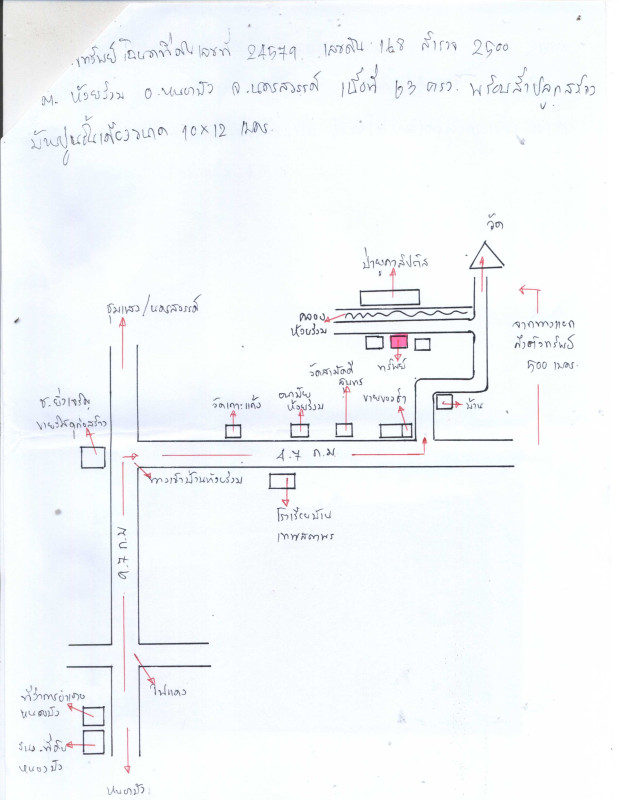 ทรัพย์ โฉนดที่ดินเลขที่ 24579 เลขดิน 168 สำรวจ 2500
ต. ห้วยร่วม อ.หนองบัว จ.นครสวรรค์ เนื้อที่ 63 ตรว. พร้อมสิ่งปลูกสร้าง
บ้านปูนชั้นเดียวขนาด 10×12 เมตร.
วัด
ชุมแสง/นครสวรรค์
คลอง
ห้วยร่วม
จากทางแยก
ถึงตัวทรัพย์
500 เมตร.
ทรัพย์
วัดสามัคคี
สุนทร
อนามัย
ห้วยร่วม
วัดเกาะแก้ว
ขายของชำ
บ้าน
ขายวัสดุก่อสร้าง
4.7 ก.ม
ทางเข้าบ้านห้วยร่วม
โรงเรียนบ้าน
เทพสถาพร
9.7 ก.ม
ไฟแดง
ที่ว่าการอำเภอ
หนองบัว
สนง.ที่ดิน
หนองบัว
หนองบัว